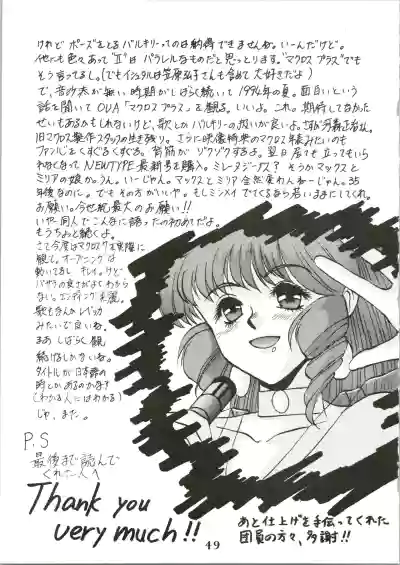 けれど ポーズをとるバルキリーってのは納得できませんね。いーんだけど。
他にも色々あって"Ⅱ"はパラレルなものだと思っとります。"マクロスプラス"でも
そう言ってるし。(でもイシュタルは笠原弘子さんも含めて大好きだよ)
で、音沙太が無い時期がしばらく続いて1994年の夏。面白いという
話を聞いてOVA「マクロスプラス」を観る。いいよ。これ。期待してなかった
せいもあるかもしれないけど、歌とかバルキリーの扱いが良い。さすが河森正治さん。
旧マクロス製作スタッフの生き残り。さらに映像特典のマクロス年表みたいのも
ファンごころをくすぐるくすぐる。背筋がゾクゾクするよ。翌日居ても立ってもいら
れなくなってNEWTYPE最新号を購入。ミレーヌ・ジーナス? そうかマックスと
ミリアの娘か。うん。いーじゃん。マックスとミリア全然変わんねーじゃん。35
年後なのに。でもその方がいいや。もしミンメイでてくるなら若いままにしてくれ。
お願い。今世紀最大のお願い!!
いや同人でこんなに語ったの初めてだよ。
もうちょっと続くよ。
さて今度はマクロス7を実際に
観て。オープニングは
動いてるし キレイ。けど
バサラの良さがよくわから
ない。エンディング 美麗。
歌もなんかレベッカ
みたいで良いね。
まあ しばらく観
続けるしかないね。
タイトルが日本語の
時とかあるのかな?
(わかる人にはわかる)
じゃ、また。
P.S
最後まで読んで
くれた人へ
Thank you
very much!!
あと仕上げを手伝ってくれた
団員の方々、多謝!!
49